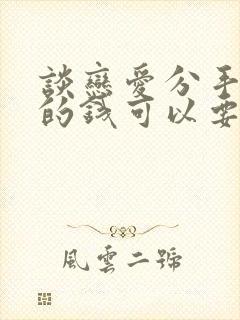 談戀愛分手
的錢可以要
風雲二號